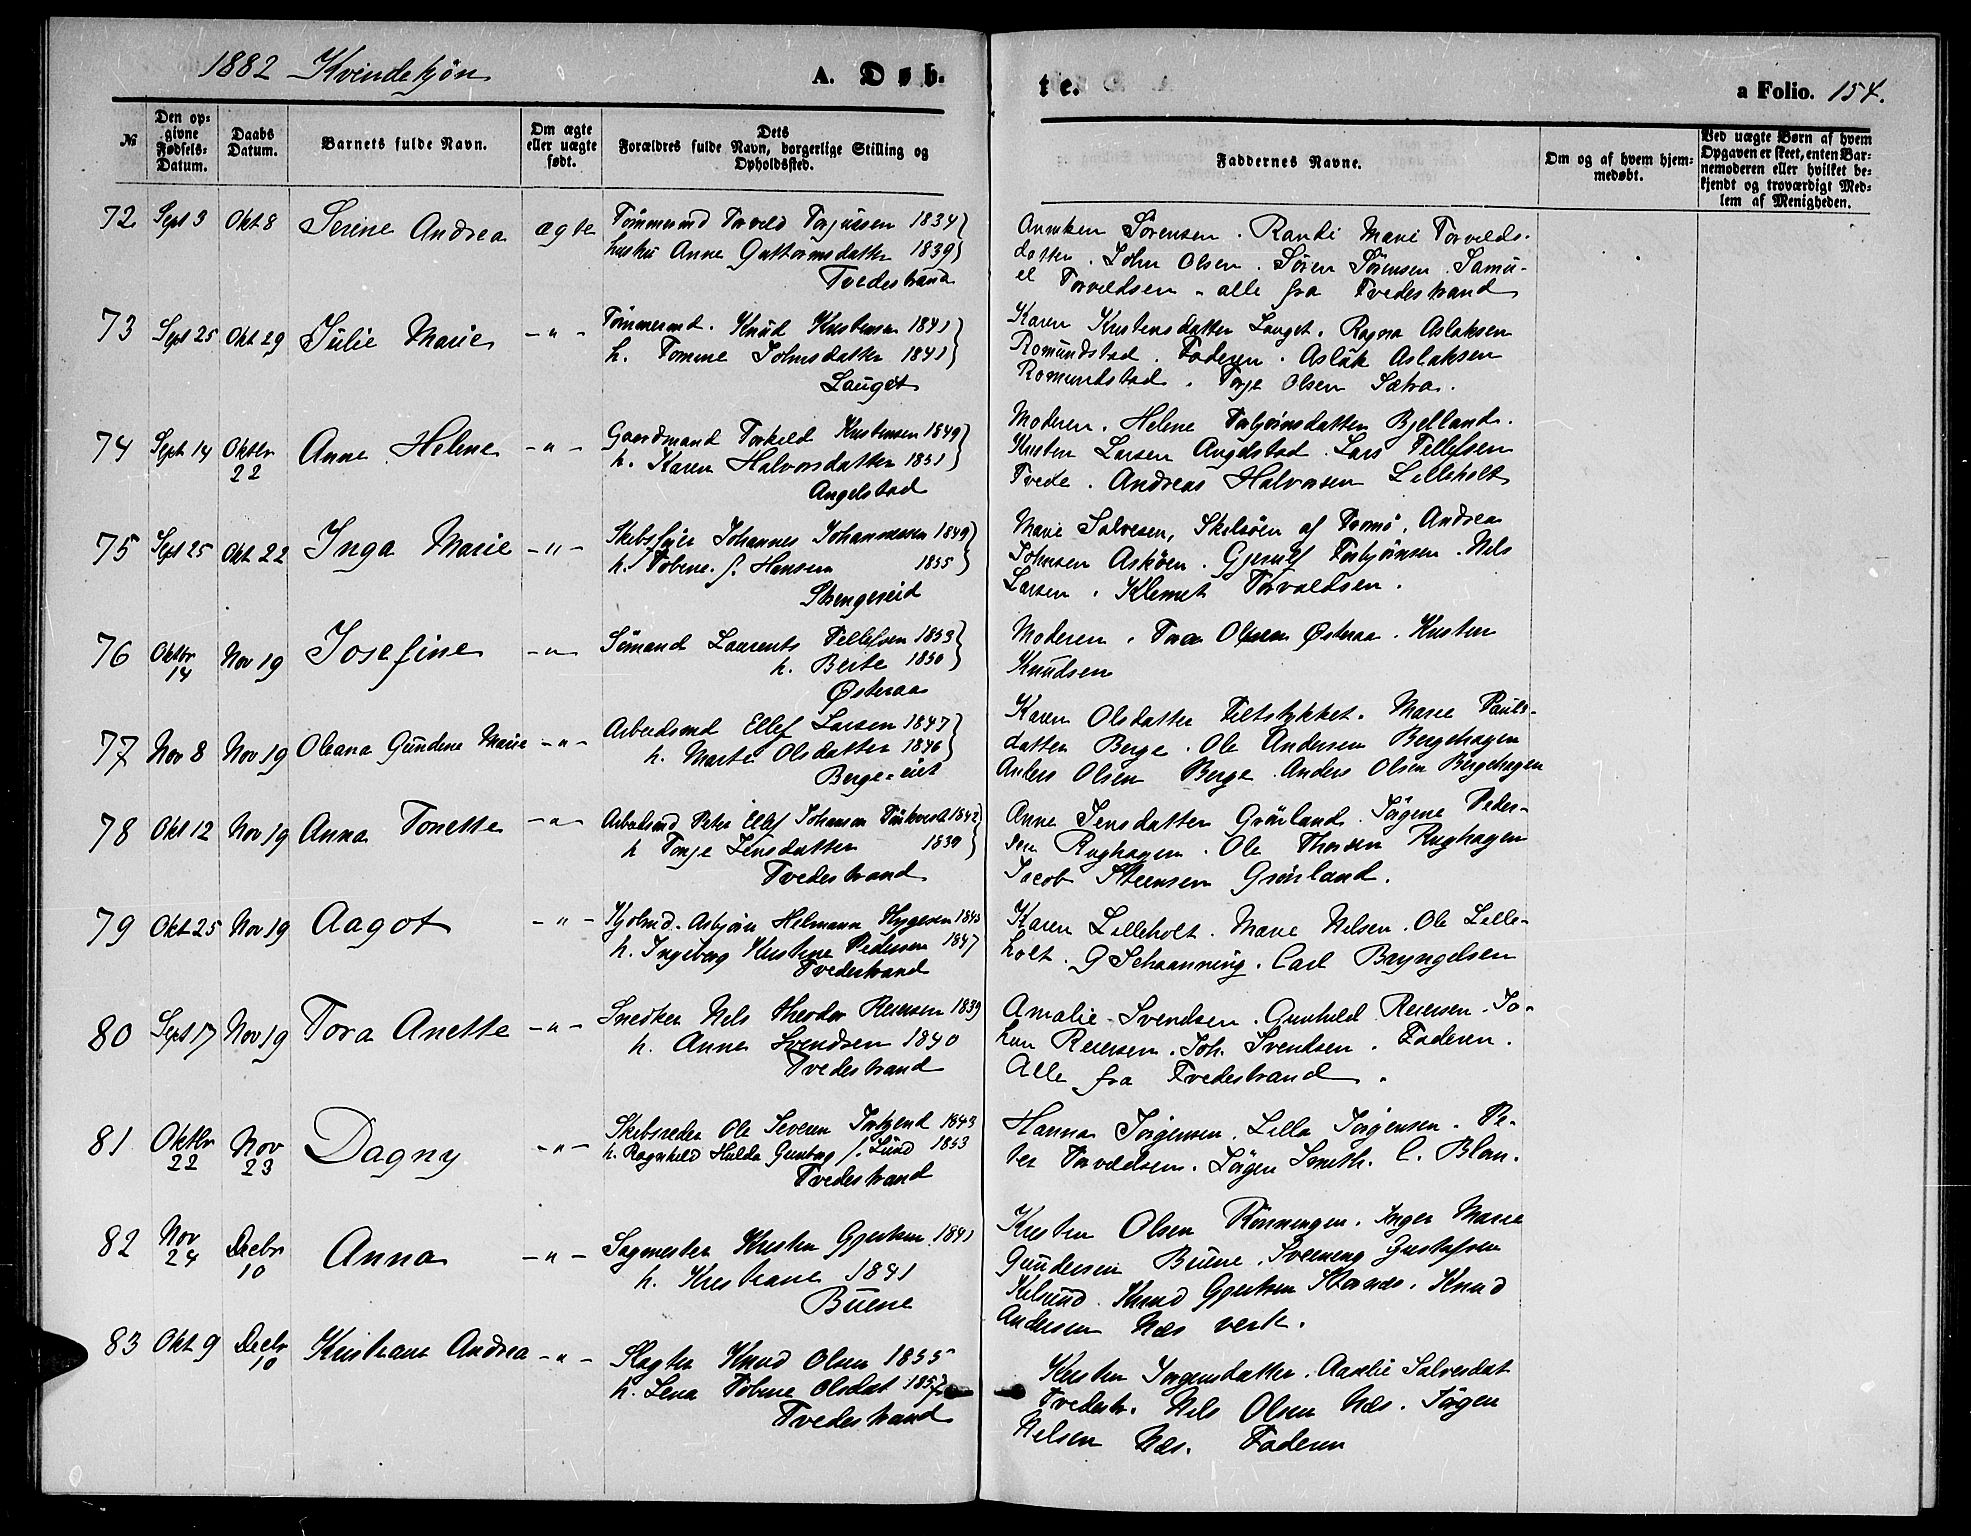 1882 Kvindekjøn
A. Døb-
te.
a Folio. 154.
№
Den op-
givne
Fødsels-
Datum.
Daabs
Datum.
Barnets fulde Navn.
Om ægte
eller uægte
født.
Dets
Forældres fulde Navn, borgerlige Stilling og
Opholdssted.
Faddernes Navne.
Om og af hvem hjem-
medøbt.
Ved uægte Børn af hvem
Opgaven er skeet, enten Bar-
nemoderen eller hvilket be-
kjendt og troværdigt Med-
lem af Menigheden.
72 Sept 3 Okt 8 Serine Andrea ægte
Tømmermd Torveld Torjussen 1834
hustru Anne Guttormsdatter 1839
Tvedestrand
Anniken Sørensen. Randi Marie Torvelds-
datter. John Olsen. Søren Sørensen. Samu-
el Torveldsen - alle fra Tvedestrand
73 Sept 25 Okt 29 Julie Marie - " -
Tømmermd. Knud Kristensen 1841
h. Tomine Johnsdatter 1841
Lauget
Karen Kristensdatter Lauget. Ragna Aslaksen
Romundstad. Faderen. Aslak Aslaksen
Romundstad. Terje Olsen Sætra.
74 Sept 14 Oktbr 22 Anne Helene - " -
Gaardmand Torkild Kristensen 1849
h. Karen Halvorsdatter 1851
Angelstad
Moderen. Helene Torbjørnsdatter Bjelland.
Kristen Larsen Angelstad. Lars Tellefsen
Tvede. Andreas Halvorsen Lilleholt
75 Sept 25 Okt 22 Inga Marie - " -
Skibsfører Johannes Johannessen 1849
h. Tobine f. Hansen 1855
Strengereid
Marie Salvesen, Skilsøen af Tromø, Andrea
Johnsen Askøen. Gjerulf Torbjørnsen. Nels
Larsen. Klemet Torvaldsen.
76 Oktbr 14 Nov 19 Josefine - " -
Sømand Laurents Tellefsen 1853
h. Berte 1850
Østeraa
Moderen. Tora Olsen Østeraa. Kristen
Knudsen
77 Nov 8 Nov 19 Oleana Gundene Marie - " -
Arbeidsmd Ellef Larsen 1847
h. Marte Olsdatter 1846
Berge-eiet
Karen Olsdatter Feltstykket. Marie Pauls-
datter Berge. Ole Andersen Bergehagen
Anders Olsen Berge. Anders Olsen Bergehagen
78 Okt 12 Nov 19 Anna Tonette - " -
Arbeidsmd Peter Ellef Johansen 1842
h Tonje Jensdatter 1839
Tvedestrand
Anne Jensdatter Grönland. Jörgine Peder-
sen Rughagen. Ole Thorsen Rughagen
Jacob Steensen Grönland.
79 Okt 25 Nov 19 Aagot - " -
Asbjørn Helmann 1843
h. Ingeborg Kristine Pedersen 1847
Tvedestrand
Karen Lilleholt. Marie Nelsen. Ole Lille-
holt. G Schaanning. Carl Bryngelsen
80 Sept 17 Nov 19 Tora Anette - " -
Snedker Nels Theodor Reiersen 1839
h. Anne Svendsen 1840
Tvedestrand
Amalie Svendsen. Gunhild Reiersen. Jo-
han Reiersen. Joh. Svendsen. Faderen.
Alle fra Tvedestrand.
81 Oktbr 22 Nov 23 Dagny - " -
Skibsreder Ole Severin 1843
h. Ragnhild Hulda f. Lund 1853
Tvedestrand
Hanna Jörgensen. Lilla Jörgensen. Pe-
ter Torveldsen. Jörgen Smith. C. Blom.
82 Nov 24 Decbr 10 Anna - " -
Sagmester Kristen Gjertsen 1841
h. Kristiane 1841
Buene
Kristen Olsen Rønningen. Inger Marie
Gundersen Buene. Gustafsen
Knud Gjertsen. Knud
Andersen Næs verk.
83 Okt 9 Decbr 10 Kristiane Andrea - " -
Slagter Knud Olsen 1855
h. Lena Tobine Olsdat 1857
Tvedestrand
Kristen Jörgensdatter. Aaselie Salvesdat
Tvedestr. Nels Olsen Næs. Jörgen
Nelsen Næs. Faderen